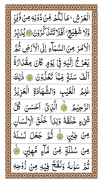 الْعَرْشِ ۖ مَا لَكُم مِّن دُونِهِ مِن وَلِيٍّ
وَلَا شَفِيعٍ ۚ أَفَلَا تَتَذَكَّرُونَ ۝ يُدَبِّرُ
الْأَمْرَ مِنَ السَّمَاءِ إِلَى الْأَرْضِ ثُمَّ
يَعْرُجُ إِلَيْهِ فِي يَوْمٍ كَانَ مِقْدَارُهُ
أَلْفَ سَنَةٍ مِّمَّا تَعُدُّونَ ۝ ذَٰلِكَ
عَالِمُ الْغَيْبِ وَالشَّهَادَةِ الْعَزِيزُ
الرَّحِيمُ ۝ الَّذِي أَحْسَنَ كُلَّ
شَيْءٍ خَلَقَهُ ۖ وَبَدَأَ خَلْقَ الْإِنسَانِ
مِن طِينٍ ۝ ثُمَّ جَعَلَ نَسْلَهُ
مِن سُلَالَةٍ مِّن مَّاءٍ مَّهِينٍ ۝
ثُمَّ سَوَّاهُ وَنَفَخَ فِيهِ مِن رُّوحِهِ